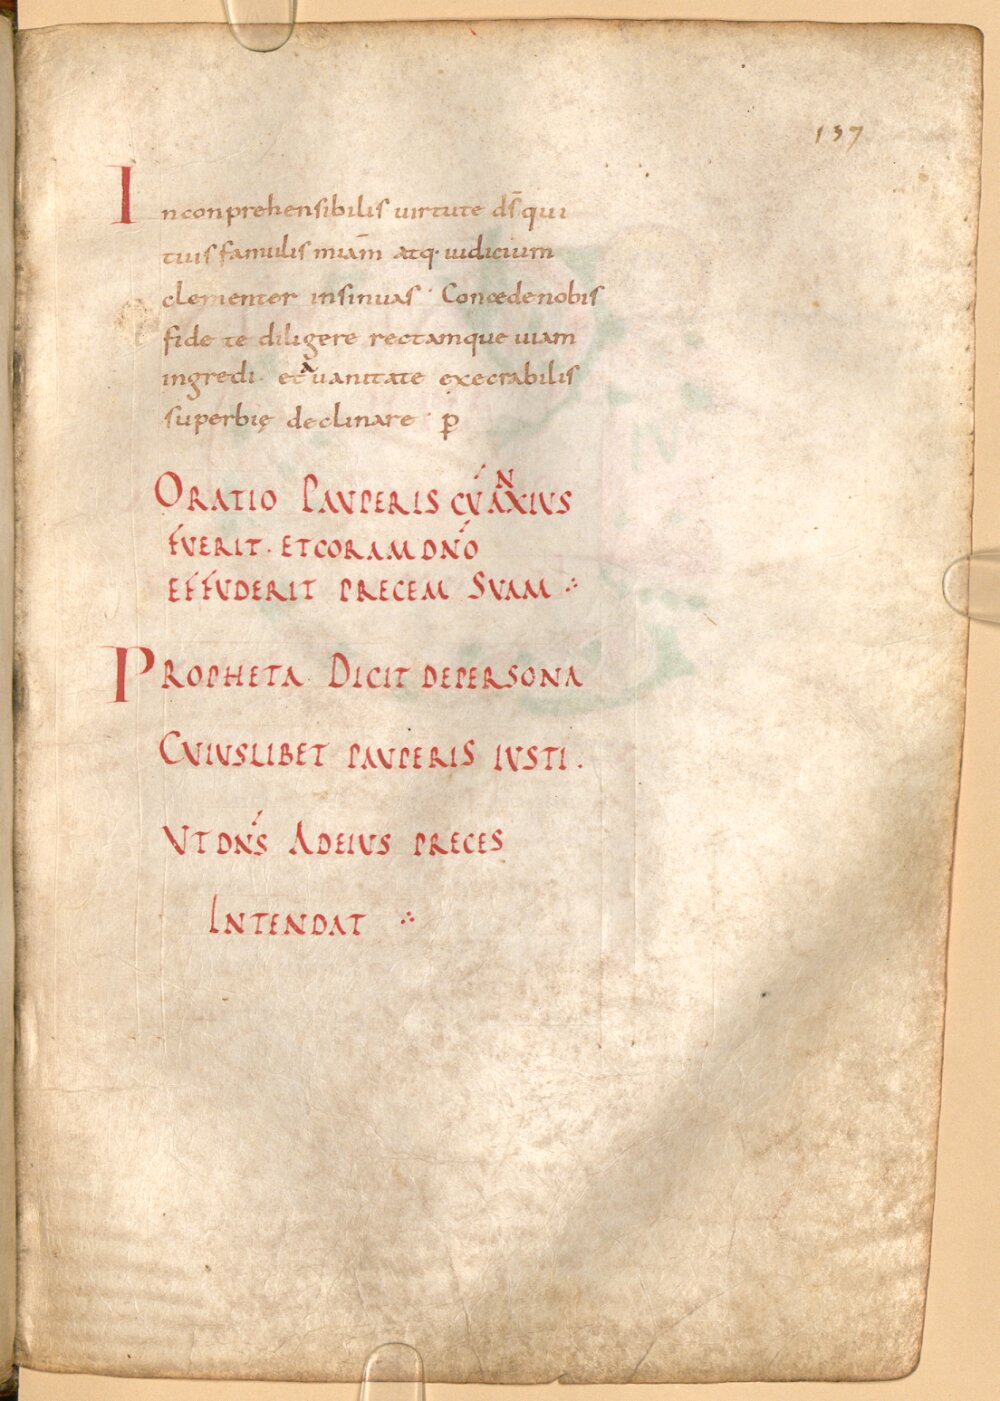 137
Inconprehensibilis uirtute ds̄ qui
tuis famulis miam̄ atq· iudicium
clementer insinuas · Concede nobis
fide te diligere rectamque uiam
ingredi · et a uanitate execrabilis
superbię declinare · p̱
ORATIO PAUPERIS CŪ ANXIUS
FUERIT · ET CORAM DN̄O
EFFUDERIT PRECEM SUAM ჻
PROPHETA DICIT DE PERSONA
CUIUSLIBET PAUPERIS IUSTI .
UT DN̄S AD EIUS PRECES
INTENDAT ჻